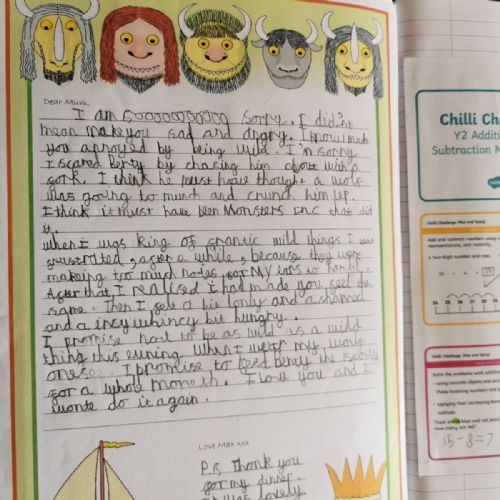 Dear Mum,
I am soooooooooooo sorry. I did'nt
mean make you sad and angry. I know I mad
you annoyed by being wild. I'm sorry
I scared Berty by chacing him about with a
fork. I think he must have thought a wolf
was going to munch and crunch him up.
I think it must have been Monsters INC that did
it.
When I was king of frantic wild things I was
frustrated, after a while, because they were
making too much noies for My ears to handl.
After that I realised I had made you feel the
same. Then I felt a bit lonly and ashamed
and a incy whincy bit hungry.
I promise not to be as wild as a wild
thing this evning when I weir my wolf
onesee. I promise to feed berty the scorty
for a whole moneth. I love you and I
wonte do it again.
Love Max xxx
P.s. Thank you
for my dinner.
It was lovely
Chilli Ch
Y2 Additi
Subtraction M
Chilli Challenge:
Add and subtract numbers using
representations, and mentally,
a two-digit number and ones
Chilli Challenge:
Solve the problems with additio
using concrete objects and
those involving numbers
applying their increasing
methods.
15 - 8 = 7